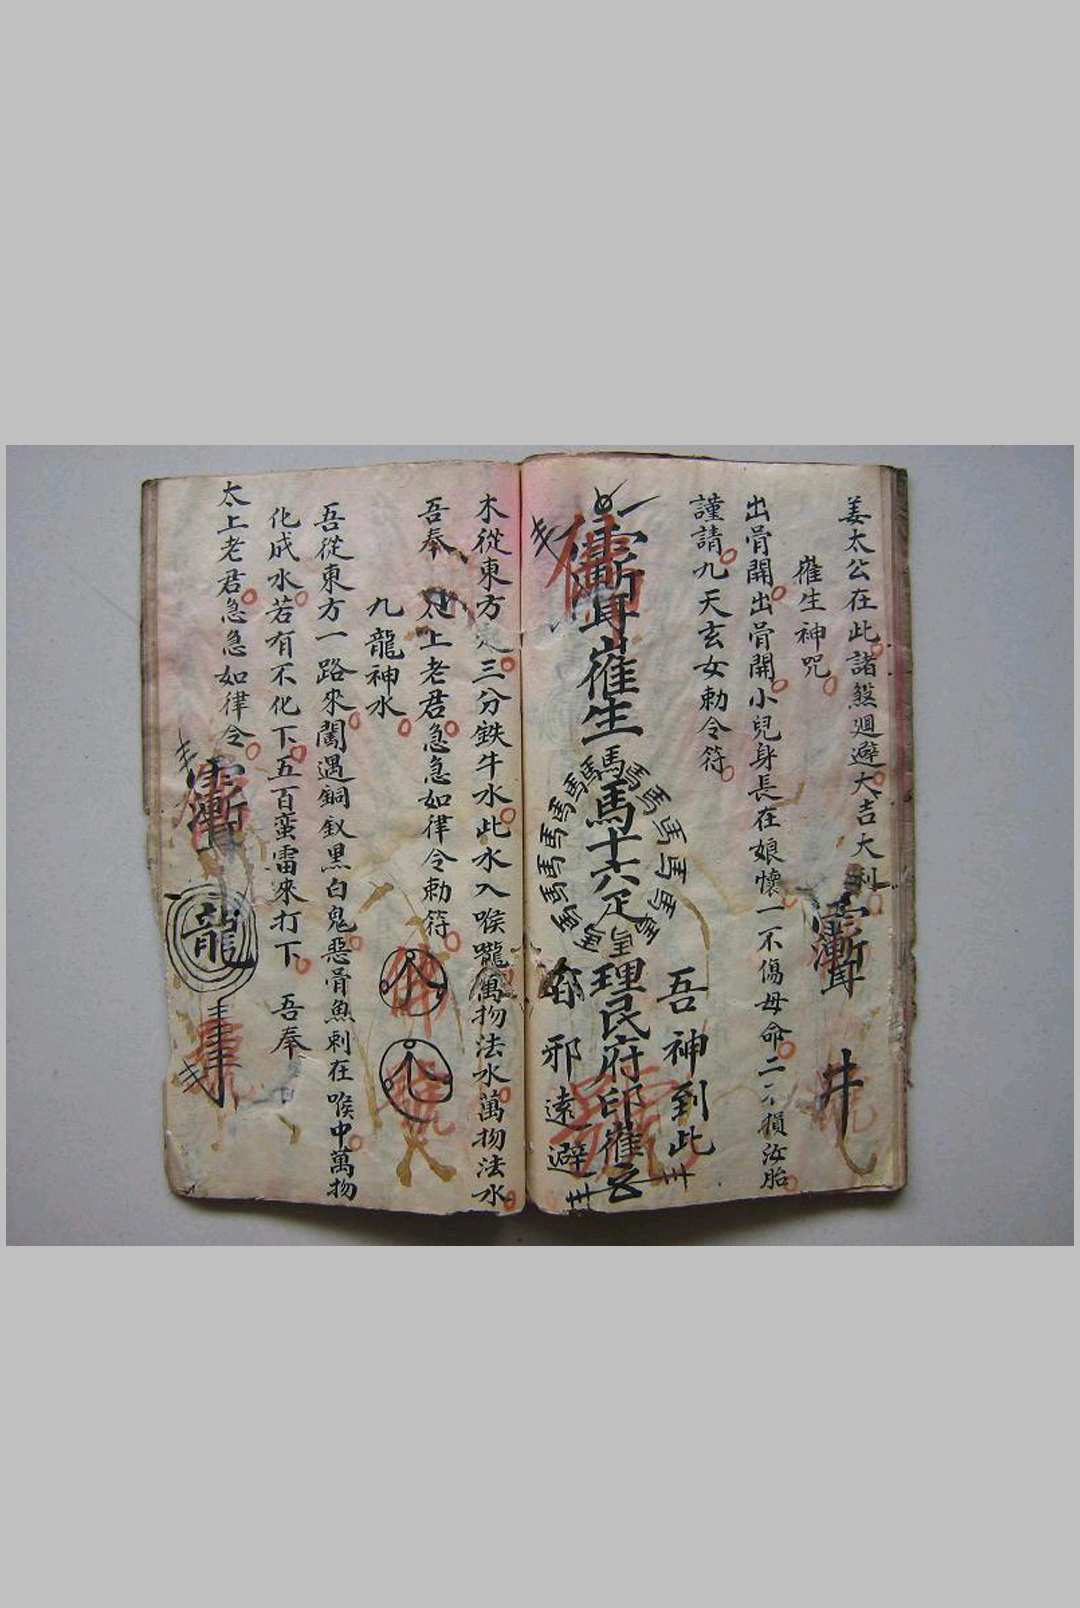 姜太公在此諸煞廻避大吉大利
崔生神咒
出骨開出骨開小兒身長在娘懷一不傷母命二不損汝胎
謹請九天玄女勅令符
吾神到此
崔生馬十六足
馬馬馬馬馬馬馬馬馬馬馬馬馬馬
理民府印崔
邪遠避
木從東方 三分鉄牛水此水入喉嚨萬物法水萬物法水
吾奉 太上老君急急如律令勅符
九龍神水
吾從東方一路來 遇銅釵黑白鬼惡骨魚刺在喉中萬物
化成水若有不化下五百蛮雷來打下 吾奉
太上老君急急如律令
龍
井